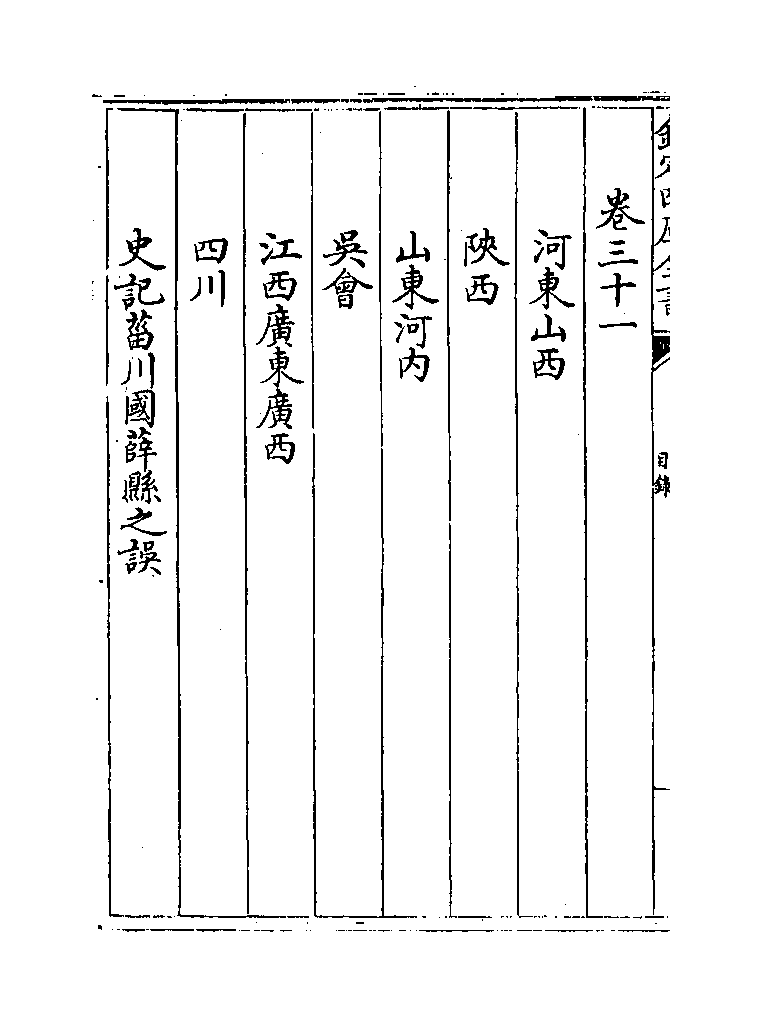 欽定四庫全書
目錄
卷三十一
河東山西
陜西
山東河内
吳會
江西廣東廣西
四川
史記菑川國薛縣之誤